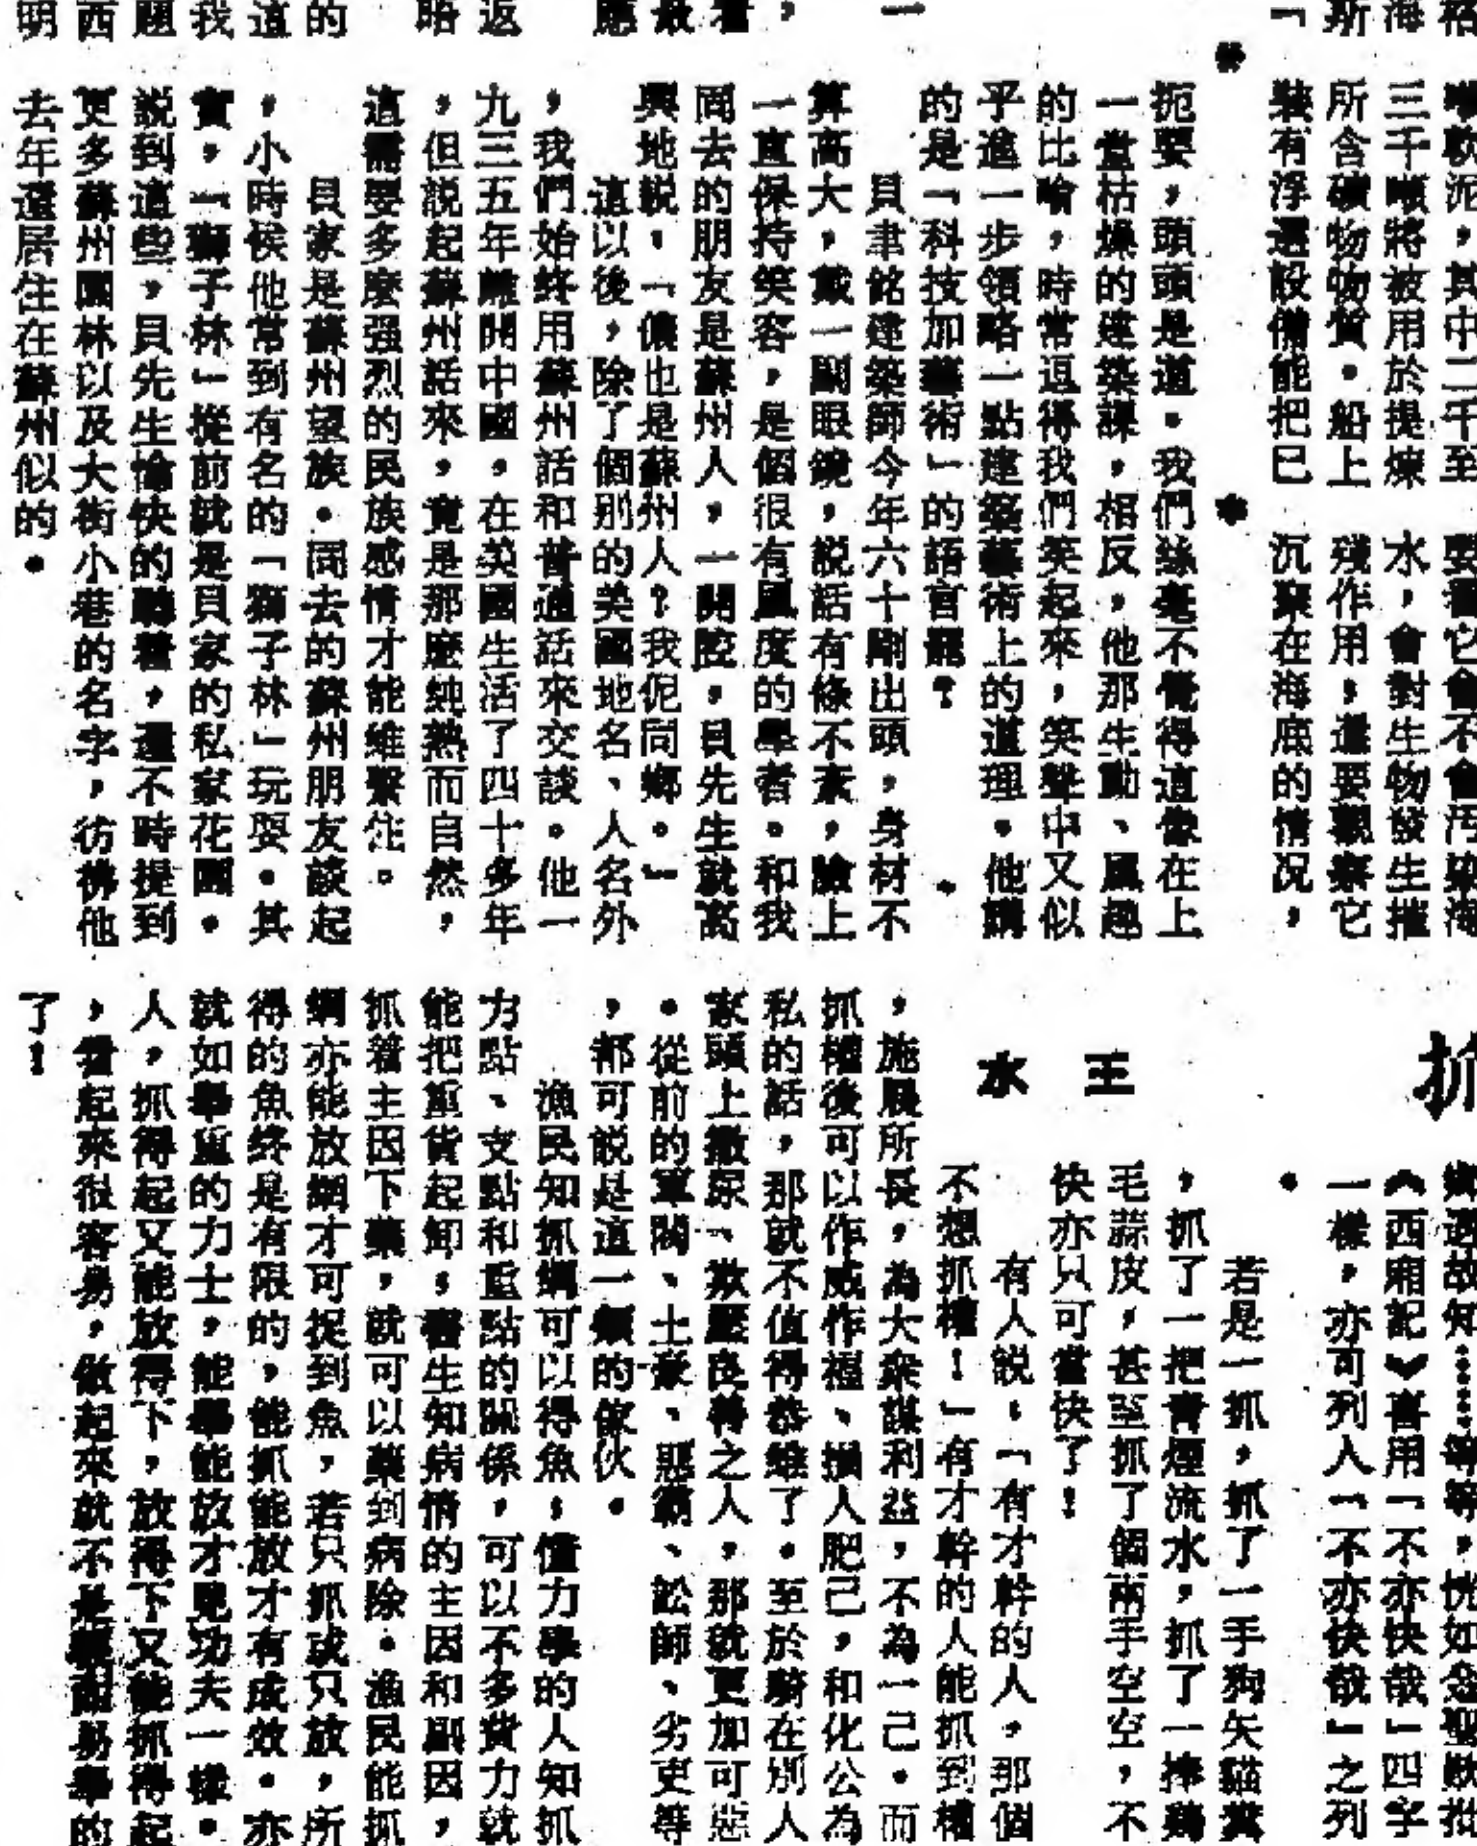 海
斯
「
一
，
看
最
應
返
略
的
這
我
題
西
明
軟泥，其中二千至
三千噸將被用於提煉
所含礦物物質。船上
裝有浮選設備能把已
要看它會不會污染海
水，會對生物發生摧
殘作用，還要觀察它
沉聚在海底的情况，
扼要，頭頭是道。我們絲毫不覺得這像在上
一堂枯燥的建築課，相反，他那生動、風趣
的比喻，時常逗得我們笑起來，笑聲中又似
乎進一步領略一點建築藝術上的道理。他講
的是「科技加藝術」的語言呢？
貝聿銘建築師今年六十剛出頭，身材不
算高大，戴一副眼鏡，説話有條不紊，臉上
一直保持笑容，是個很有風度的學者。和我
同去的朋友是蘇州人，一開腔，貝先生就高
興地説，「儂也是蘇州人？我伲同鄉。」
這以後，除了個别的美國地名、人名外
，我們始終用蘇州話和普通話來交談。他一
九三五年離開中國，在美國生活了四十多年
，但説起蘇州話來，竟是那麽純熟而自然，
這需要多麽强烈的民族感情才能維繫住。
貝家是蘇州望族。同去的蘇州朋友談起
，小時候他常到有名的「獅子林」玩耍。其
實，「獅子林」從前就是貝家的私家花園。
説到這些，貝先生愉快的聽着，還不時提到
更多蘇州園林以及大街小巷的名字，彷彿他
去年還居住在蘇州似的。
抓
王水
《西廂記》喜用「不亦快哉」四字
一樣，亦可列入「不亦快哉」之列
。
若是一抓，抓了一手狗矢貓糞
，抓了一把青煙流水，抓了一捧鷄
毛蒜皮，甚至抓了個兩手空空，不
快亦只可當快了！
有人説，「有才幹的人，那個
不想抓權！」有才幹的人能抓到權
，施展所長，為大衆謀利益，不為一己。而
抓權後可以作威作福、損人肥己，和化公為
私的話，那就不值得恭維了。至於騎在别人
家頭上撒尿、欺壓良善之人，那就更加可惡
。從前的軍閥、土豪、惡霸、訟師、劣吏等
，都可説是這一類的傢伙。
漁民知抓綱可以得魚，懂力學的人知抓
力點、支點和重點的關係，可以不多費力就
能把重貨起卸，醫生知病情的主因和副因，
抓着主因下藥，就可以藥到病除。漁民能抓
綱亦能放綱才可捉到魚，若只抓或只放，所
得的魚終是有限的，能抓能放才有成效。亦
就如舉重的力士，能舉能放才見功夫一樣。
人，抓得起又能放得下，放得下又能抓得起
，看起來很容易，做起來就不是輕而易舉的
了！